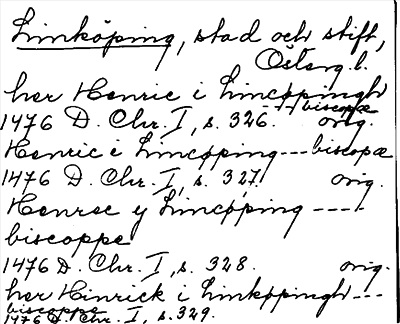 Linköping, stad och stift,
Österg. l.
her Henric i Lincöpingh
--- biscopæ
1476 D. Chr. I, s. 326. orig.
Henric i Lincöping --- biscopæ
1476 D. Chr. I, s. 327. orig.
Henrec y Lincöping ----
biscoppe
1476 D. Chr. I, s. 328. orig.
her Hinrick i Linköpingh ---
biscoppe
1476 D. Chr. I, s. 329.